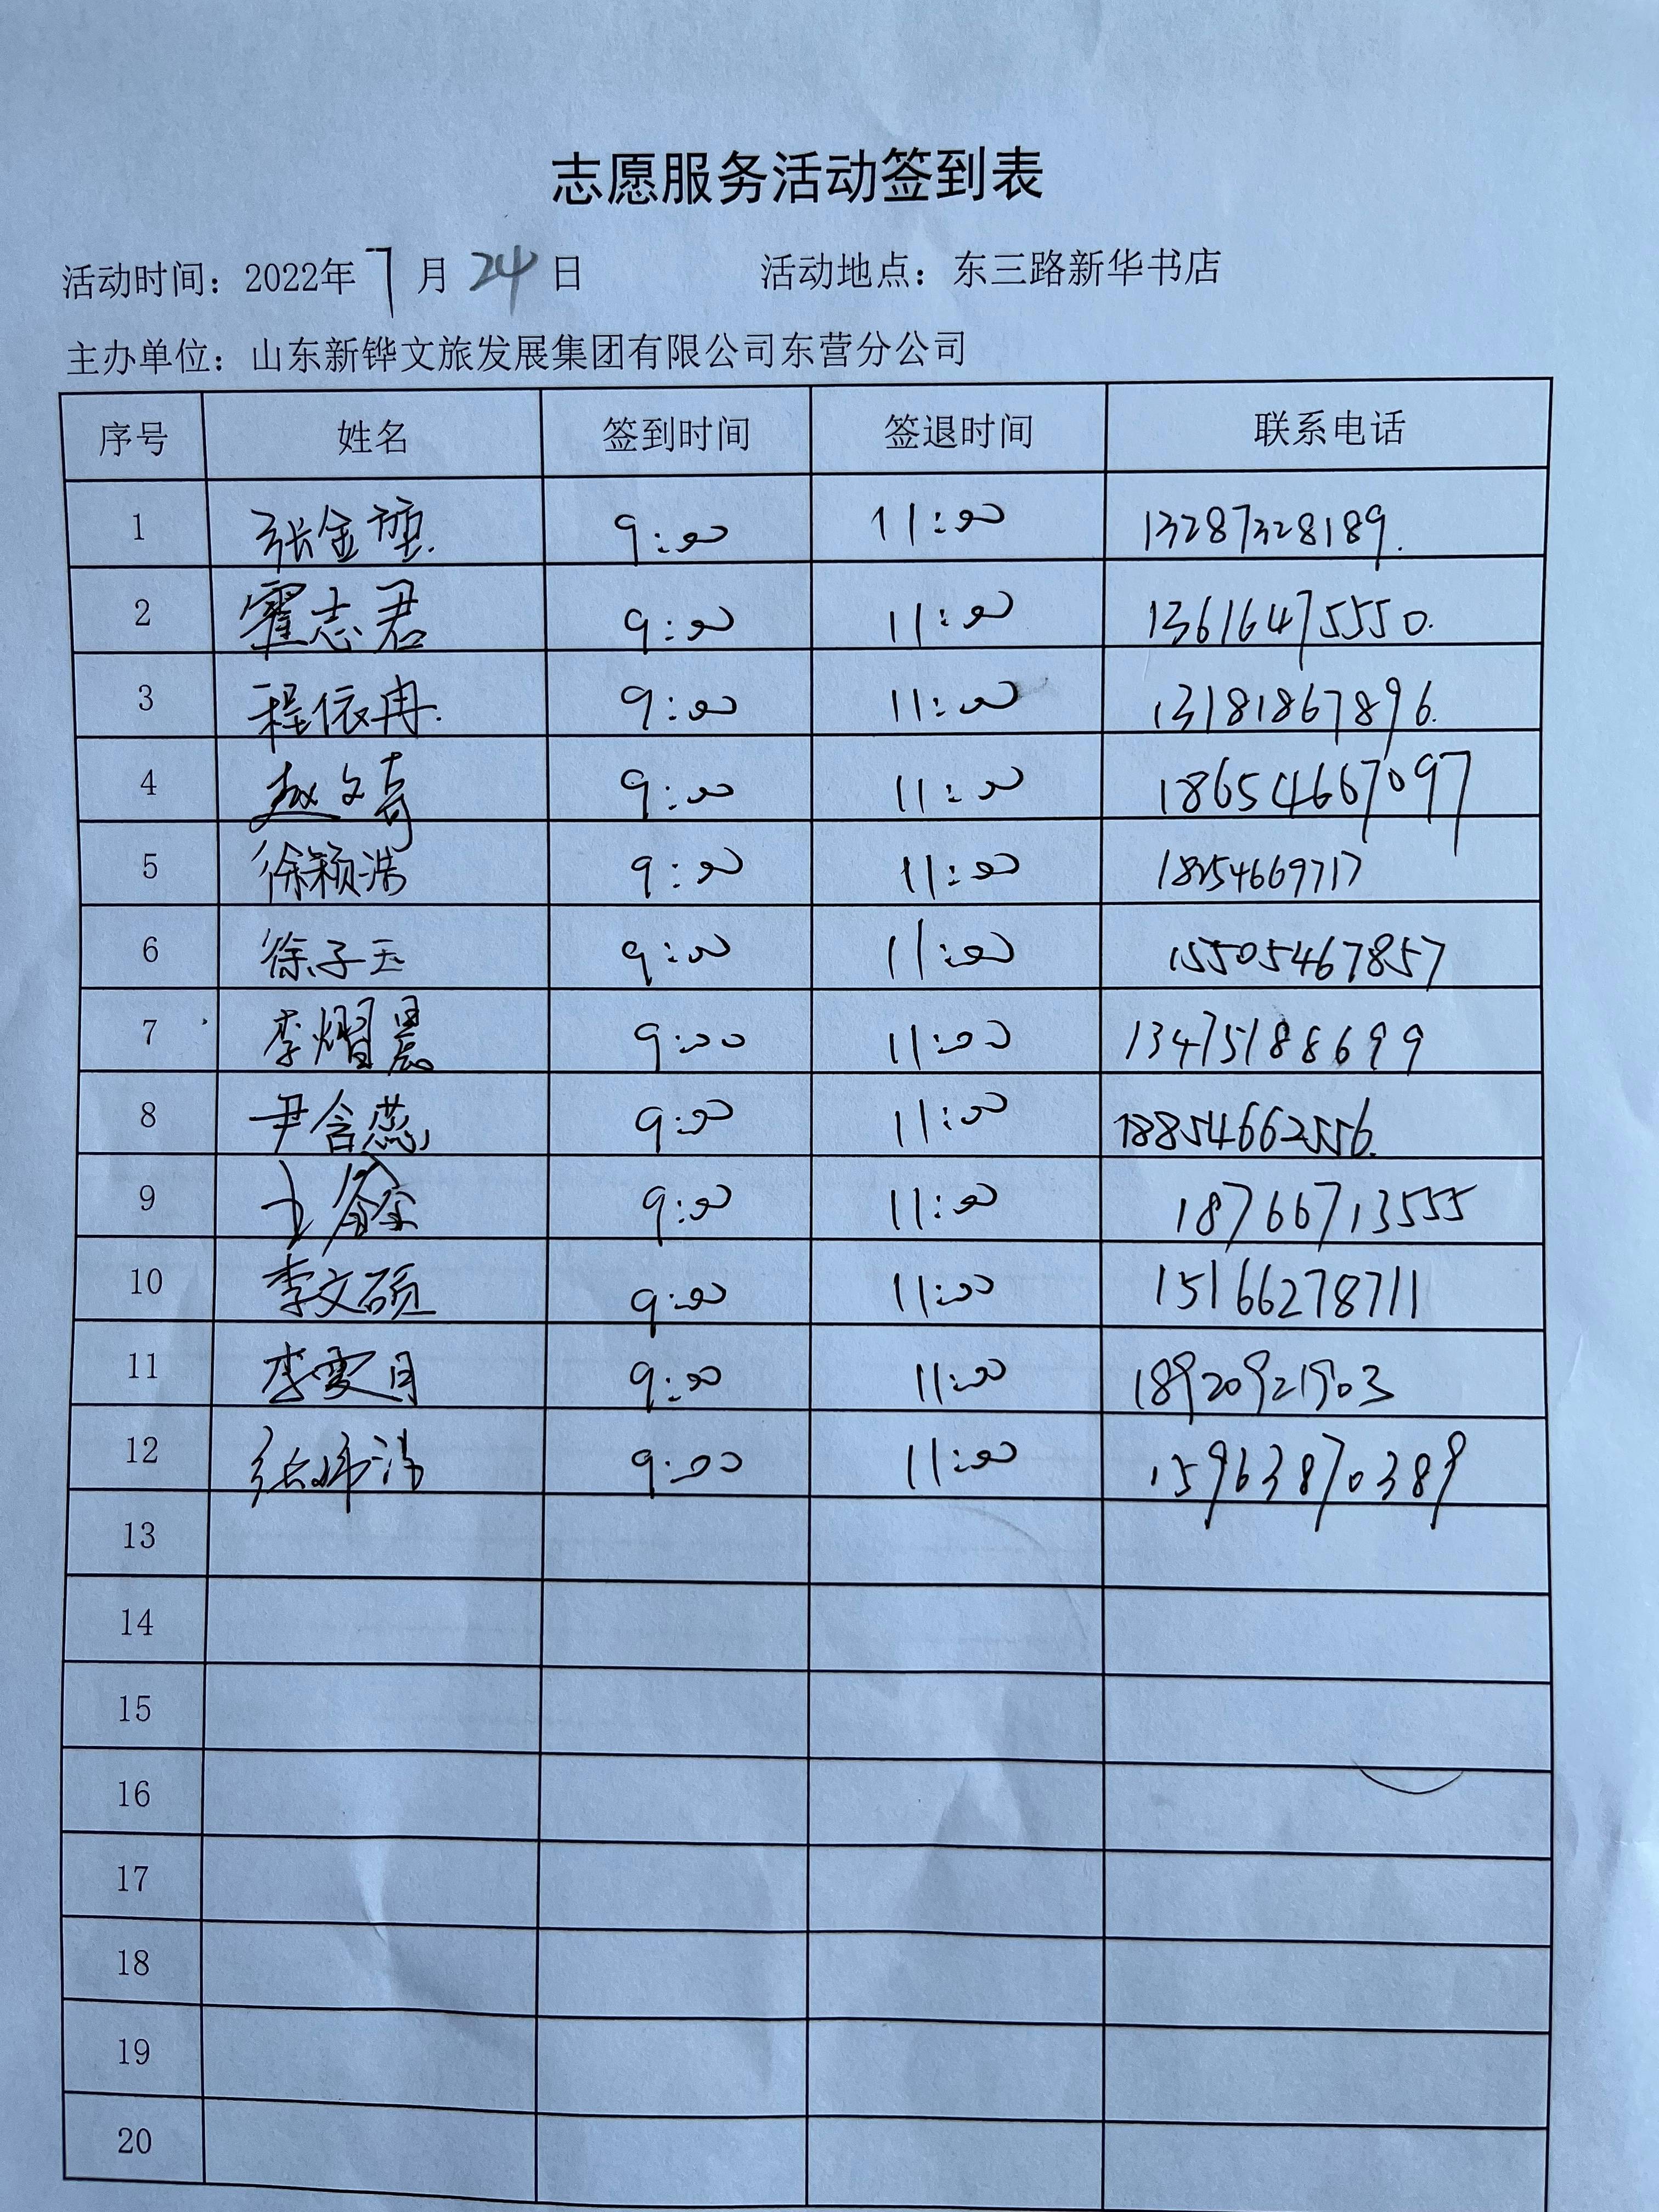 志愿服务活动签到表
活动时间：2022年7月24日 活动地点：东三路新华书店
主办单位：山东新铧文旅发展集团有限公司东营分公司
序号 姓名 签到时间 签退时间 联系电话
1 张金 9:00 11:00 13287328189.
2 霍志君 9:00 11:00 13616475550.
3 程依冉. 9:00 11:00 13181867896.
4 赵文奇 9:00 11:00 18654667097
5 徐颖浩 9:00 11:00
6 徐子玉 9:00 11:00 15505467857
7 李熠晨 9:00 11:00 13475188699
8 尹含蕊 9:00 11:00 18854662556.
9 9:00 11:00 18766713555
10 李文硕 9:00 11:00 15166278711
11 李雯月 9:00 11:00 18920921903
12 张 9:00 11:00 15963870389
13
14
15
16
17
18
19
20